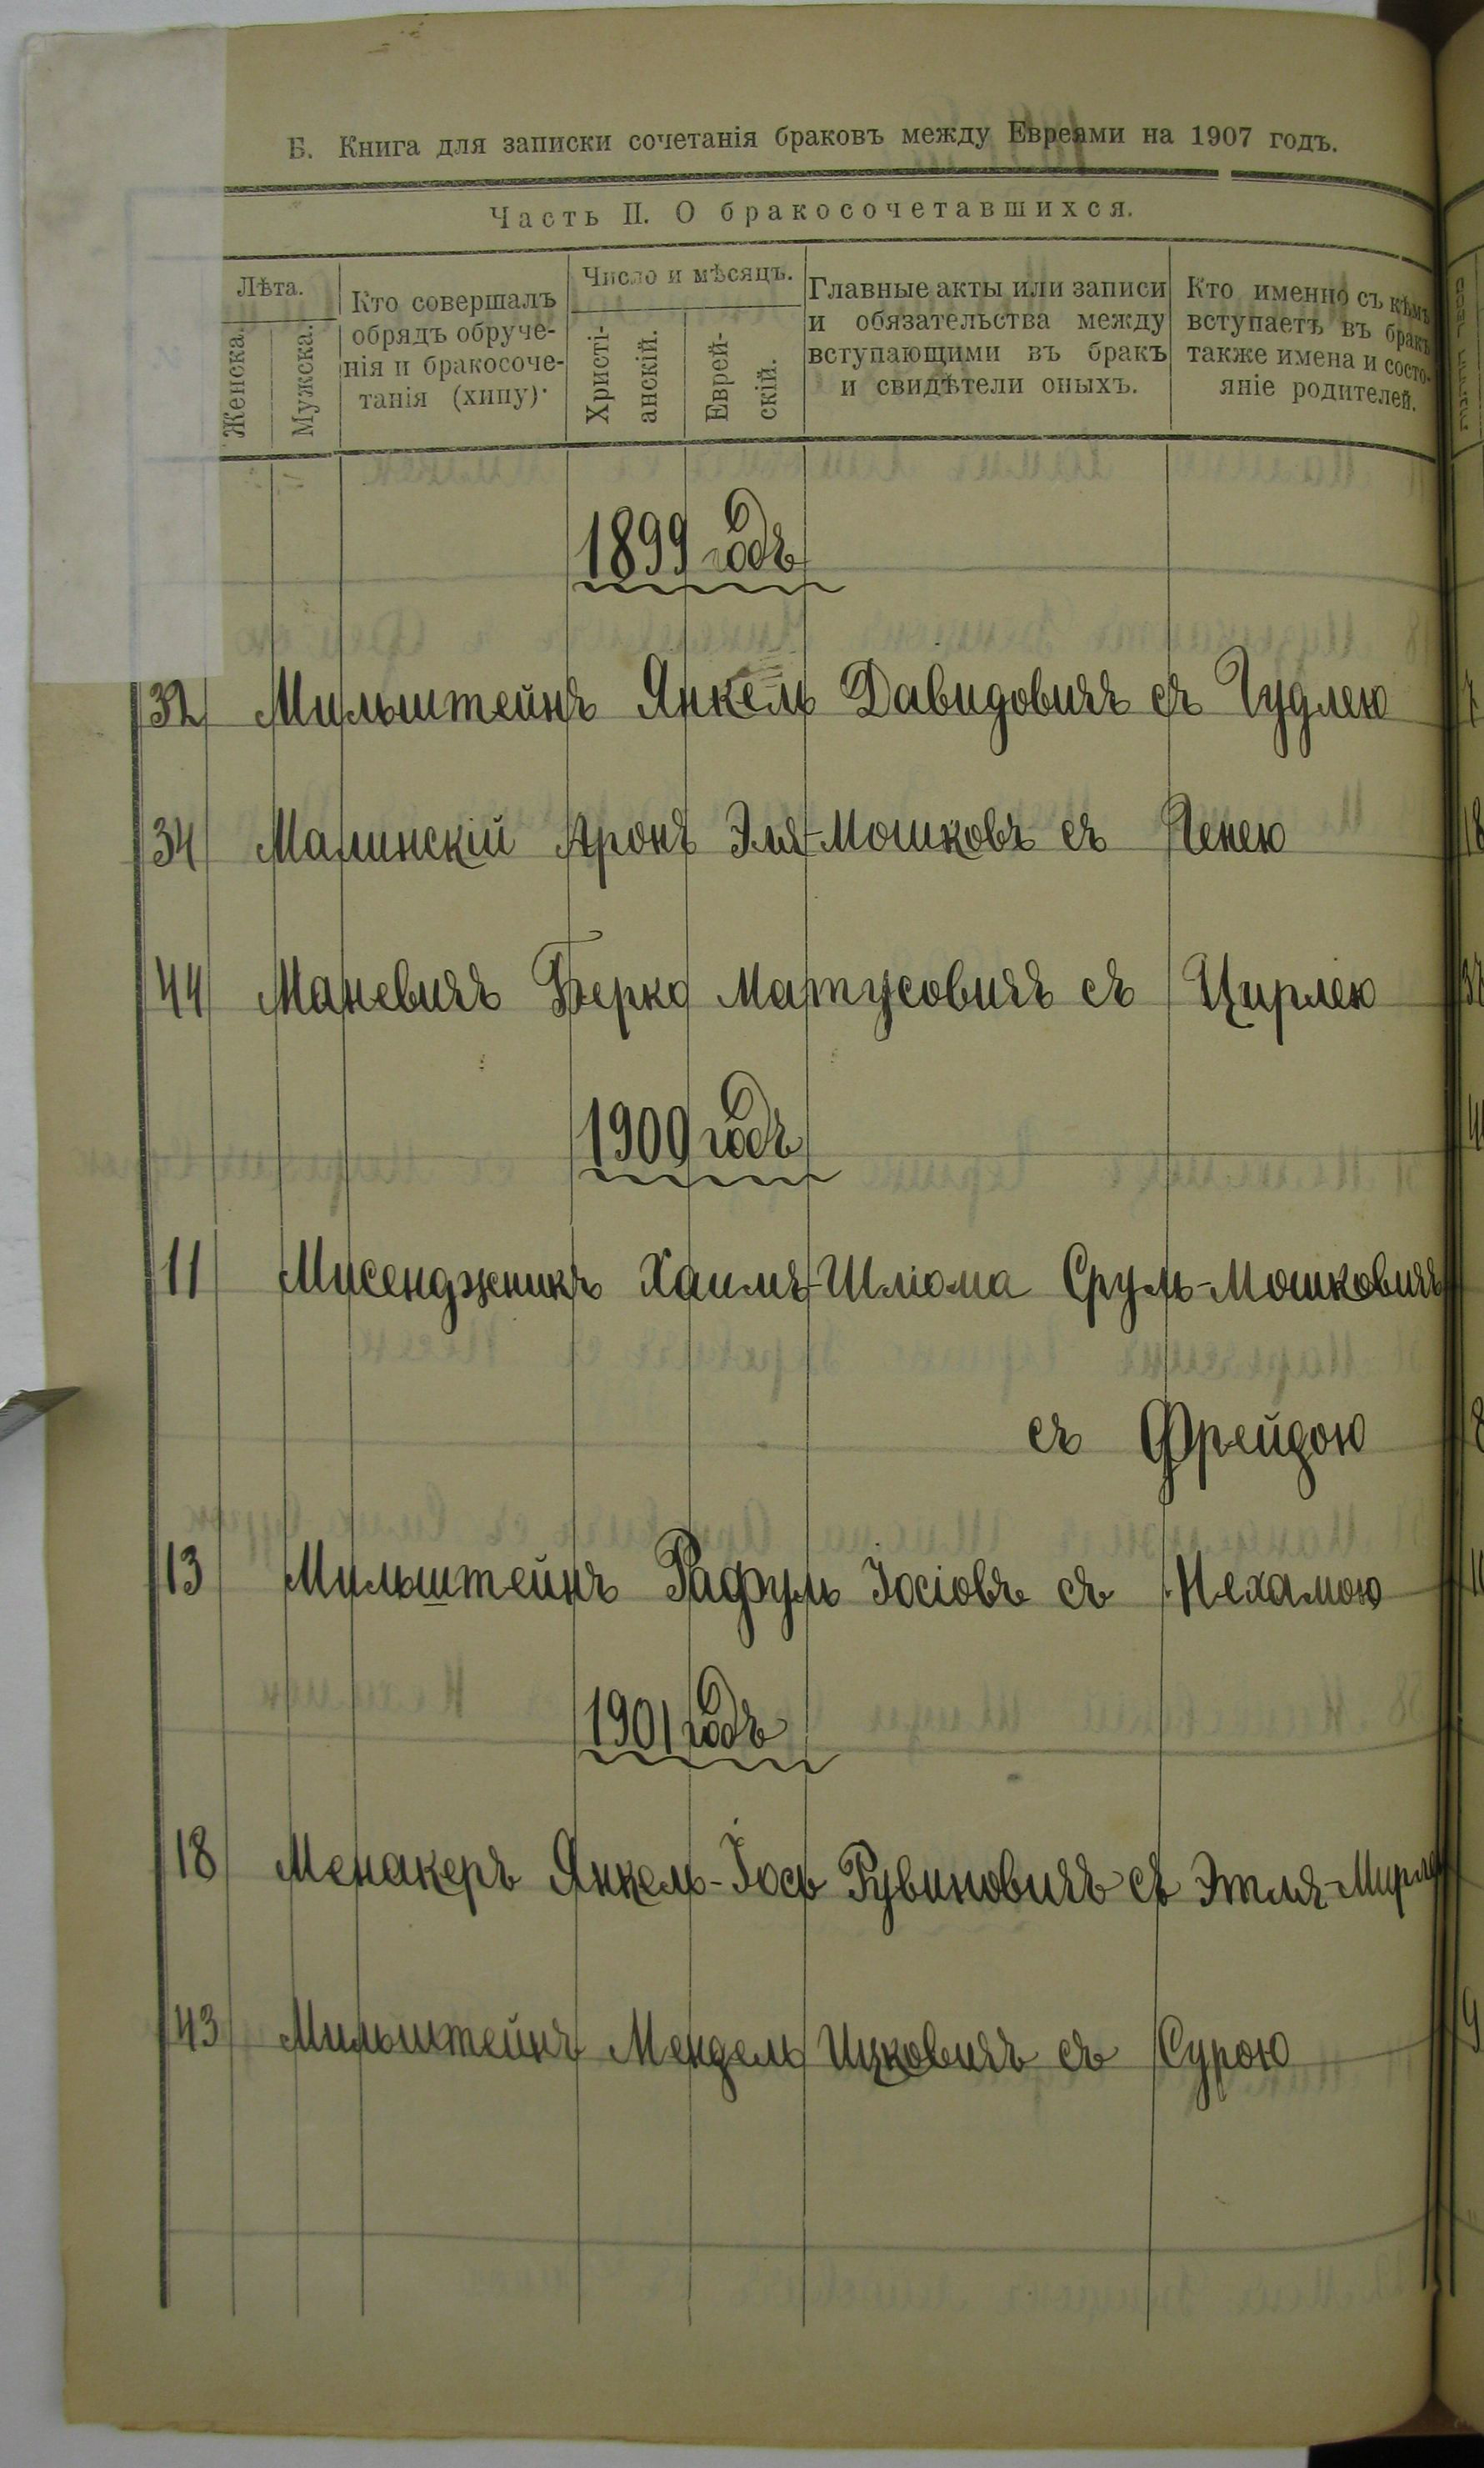 Б. Книга для записки сочетанія браковъ между Евреями на 1907 годъ.
Часть II. О бракосочетавшихся.
Лѣта.
Женска.
Мужска.
Кто совершалъ
обрядъ обруче-
нія и бракосоче-
танія (хипу).
Число и мѣсяцъ.
Христі-
анскій.
Еврей-
скій.
Главные акты или записи
и обязательства между
вступающими въ бракъ
и свидѣтели оныхъ.
Кто именно съ кѣмъ
вступаетъ въ бракъ
также имена и состо-
яніе родителей.
1899 годъ
32 Мильштейнъ Янкель Давидовичъ съ Гудлею
34 Малинскій Аронъ Эля-Мошковъ съ Генею
44 Маневичъ Берко Матусовичъ съ Цирлею
1900 годъ
11 Мисенджникъ Хаимъ-Шліома Сруль-Мошковичъ
съ Фрейдою
13 Мильштейнъ Рафуль Іосіовъ съ Нехамою
1901 годъ
18 Менакеръ Янкель-Іось Рувиновичъ съ Этля-Мирл
43 Мильштейнъ Мендель Ицковичъ съ Сурою